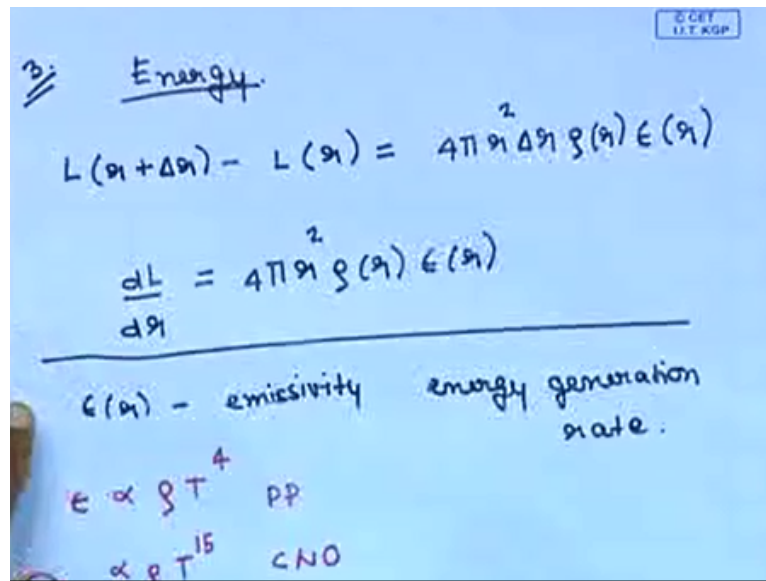 © CET
I.I.T. KGP
3. Energy.
L(r+Δr) - L(r) = 4πr²Δr ρ(r) ϵ(r)
dL/dr = 4πr² ρ(r) ϵ(r)
ϵ(r) - emissivity energy generation
rate.
ϵ ∝ ρT⁴ PP
∝ ρT¹⁵ CNO